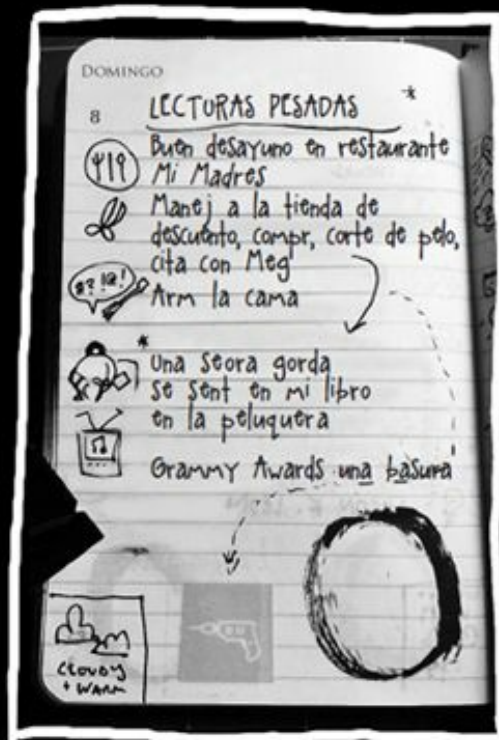 DOMINGO
8 LECTURAS PESADAS *
Buen desayuno en restaurante
Mi Madres
Manej a la tienda de
descuento, compr, corte de pelo,
cita con Meg
#? !@!
Arm la cama
*
Una seora gorda
se sent en mi libro
en la peluquera
Grammy Awards una basura
CLOUDY
+ WARM